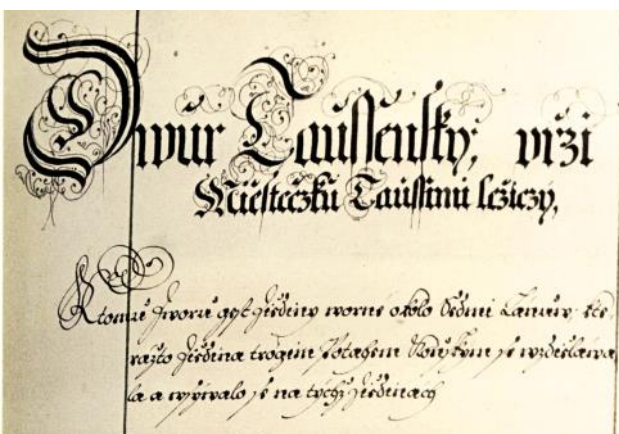 Dwůr Taussensky, při
Miestečzku Taussimu ležiczy,
K tomu Dworu gest Dědiny worné okolo Sedmi Lánuw, kte
ražto Dědina trogim Potahem Koňskym se wzdielawa
la a wysywalo se na tiychž Dědinách